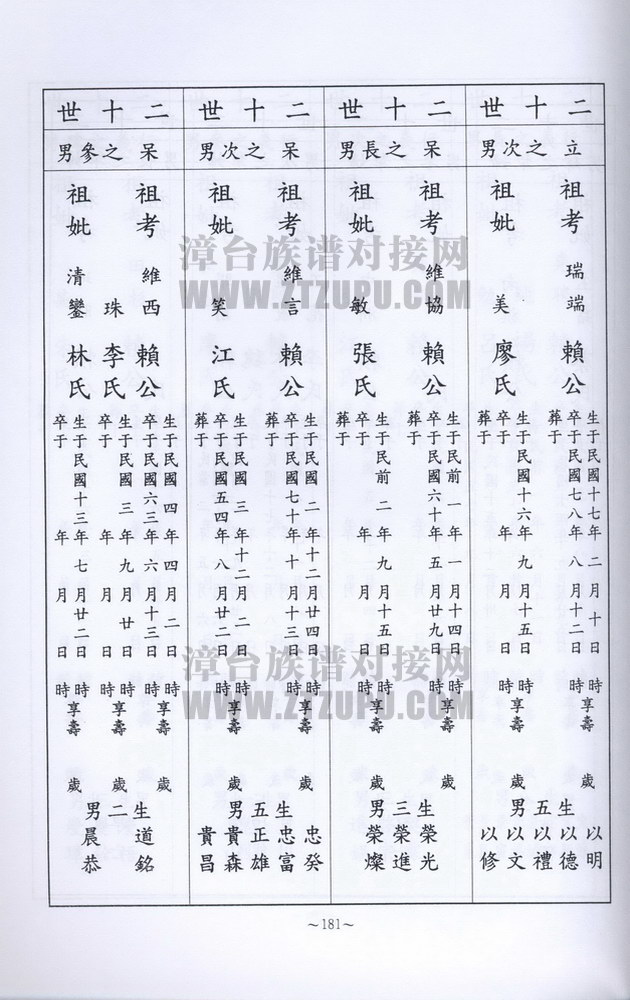 二十世
立之次男
祖考 瑞端 賴公
生于民國十七年二月十日時享壽歲
卒于民國七八年八月十二日時
葬于
祖妣 美 廖氏
生于民國十六年九月十五日時享壽歲
卒于 年 月 日時
葬于
生五男
以明
以德
以禮
以文
以修
二十世
呆之長男
祖考 維協 賴公
生于民前一年一月十四日時享壽歲
卒于民國六十年五月廿九日時
葬于
祖妣 敏 張氏
生于民前二年九月十五日時享壽歲
卒于 年 月 日時
葬于
生三男
榮光
榮進
榮燦
二十世
呆之次男
祖考 維言 賴公
生于民國二年十二月廿四日時享壽歲
卒于民國七十年十月十三日時
葬于
祖妣 笑 江氏
生于民國三年十二月二日時享壽歲
卒于民國五四年八月廿二日時
葬于
生五男
忠癸
忠富
正雄
貴森
貴昌
二十世
呆之參男
祖考 維西 賴公
生于民國四年四月二日時享壽歲
卒于民國六三年六月十三日時
祖妣 珠 李氏
生于民國三年九月廿日時享壽歲
卒于 年 月 日時
清鑾 林氏
生于民國十三年七月廿二日時享壽歲
卒于 年 月 日時
生二男
道銘
晨恭
~181~
漳台族谱对接网
WWW.ZTZUPU.COM
漳台族谱对接网
WWW.ZTZUPU.COM